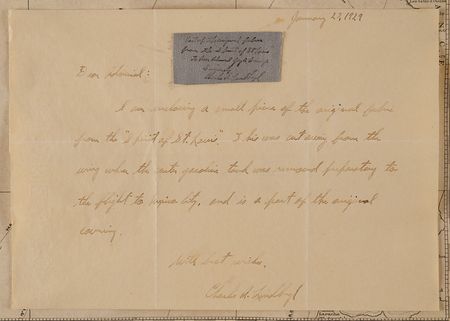 on January 27, 1929
Part of original fabric
from the Spirit of St. Louis
Charles A. Lindbergh
Dear Admiral:
I am enclosing a small piece of the original fabric
from the "Spirit of St. Louis". This was cut away from the
wing when the center gasoline tank was removed preparatory to
the flight to Mexico City, and is a part of the original
covering.
With best wishes,
Charles A. Lindbergh